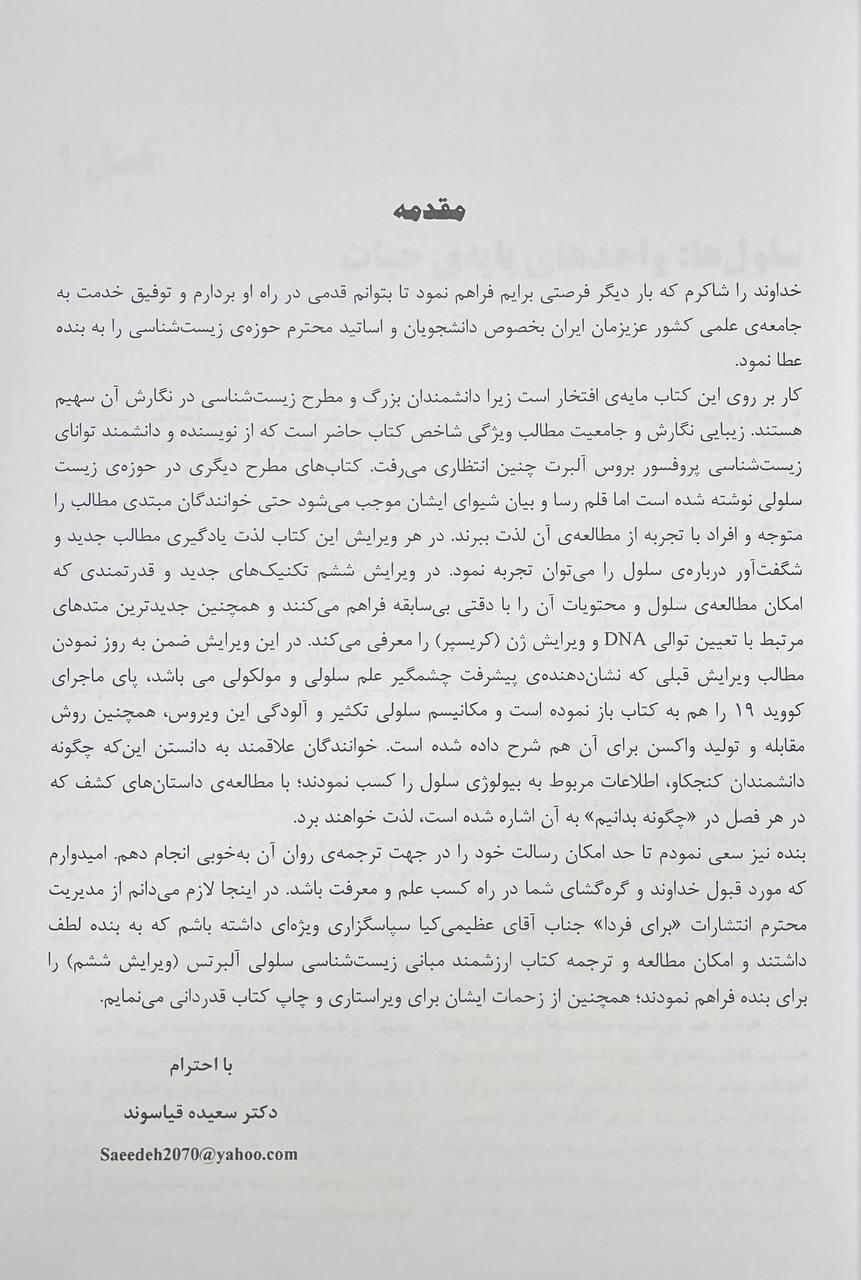 مقدمه
خداوند را شاکرم که بار دیگر فرصتی برایم فراهم نمود تا بتوانم قدمی در راه او بردارم و توفیق خدمت به
جامعه‌ی علمی کشور عزیزمان ایران بخصوص دانشجویان و اساتید محترم حوزه‌ی زیست‌شناسی را به بنده
عطا نمود.
کار بر روی این کتاب مایه‌ی افتخار است زیرا دانشمندان بزرگ و مطرح زیست‌شناسی در نگارش آن سهیم
هستند. زیبایی نگارش و جامعیت مطالب ویژگی شاخص کتاب حاضر است که از نویسنده و دانشمند توانای
زیست‌شناسی پروفسور بروس آلبرت چنین انتظاری می‌رفت. کتاب‌های مطرح دیگری در حوزه‌ی زیست
سلولی نوشته شده است اما قلم رسا و بیان شیوای ایشان موجب می‌شود حتی خوانندگان مبتدی مطالب را
متوجه و افراد با تجربه از مطالعه‌ی آن لذت ببرند. در هر ویرایش این کتاب لذت یادگیری مطالب جدید و
شگفت‌آور درباره‌ی سلول را می‌توان تجربه نمود. در ویرایش ششم تکنیک‌های جدید و قدرتمندی که
امکان مطالعه‌ی سلول و محتویات آن را با دقتی بی‌سابقه فراهم می‌کنند و همچنین جدیدترین متدهای
مرتبط با تعیین توالی DNA و ویرایش ژن (کریسپر) را معرفی می‌کند. در این ویرایش ضمن به روز نمودن
مطالب ویرایش قبلی که نشان‌دهنده‌ی پیشرفت چشمگیر علم سلولی و مولکولی می باشد، پای ماجرای
کووید ۱۹ را هم به کتاب باز نموده است و مکانیسم سلولی تکثیر و آلودگی این ویروس، همچنین روش
مقابله و تولید واکسن برای آن هم شرح داده شده است. خوانندگان علاقمند به دانستن این‌که چگونه
دانشمندان کنجکاو، اطلاعات مربوط به بیولوژی سلول را کسب نمودند؛ با مطالعه‌ی داستان‌های کشف که
در هر فصل در «چگونه بدانیم» به آن اشاره شده است، لذت خواهند برد.
بنده نیز سعی نمودم تا حد امکان رسالت خود را در جهت ترجمه‌ی روان آن به‌خوبی انجام دهم. امیدوارم
که مورد قبول خداوند و گره‌گشای شما در راه کسب علم و معرفت باشد. در اینجا لازم می‌دانم از مدیریت
محترم انتشارات «برای فردا» جناب آقای عظیمی‌کیا سپاسگزاری ویژه‌ای داشته باشم که به بنده لطف
داشتند و امکان مطالعه و ترجمه کتاب ارزشمند مبانی زیست‌شناسی سلولی آلبرتس (ویرایش ششم) را
برای بنده فراهم نمودند؛ همچنین از زحمات ایشان برای ویراستاری و چاپ کتاب قدردانی می‌نمایم.
با احترام
دکتر سعیده قیاسوند
Saeedeh2070@yahoo.com